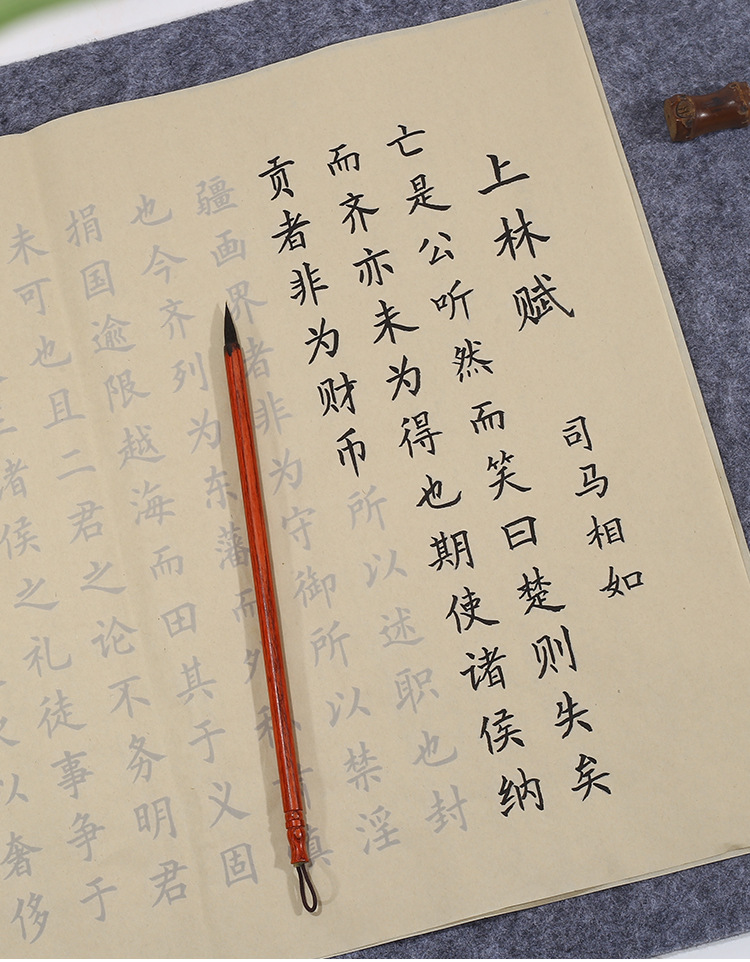 上林赋
司马相如
亡是公听然而笑曰楚则失矣
而齐亦未为得也期使诸侯纳
贡者非为财币所以述职也封
疆画界者非为守御所以禁淫
也今齐列为东藩而外私肃慎
捐国逾限越海而田其于义固
未可也且二君之论不务明君
诸侯之礼徒事争于
以奢侈